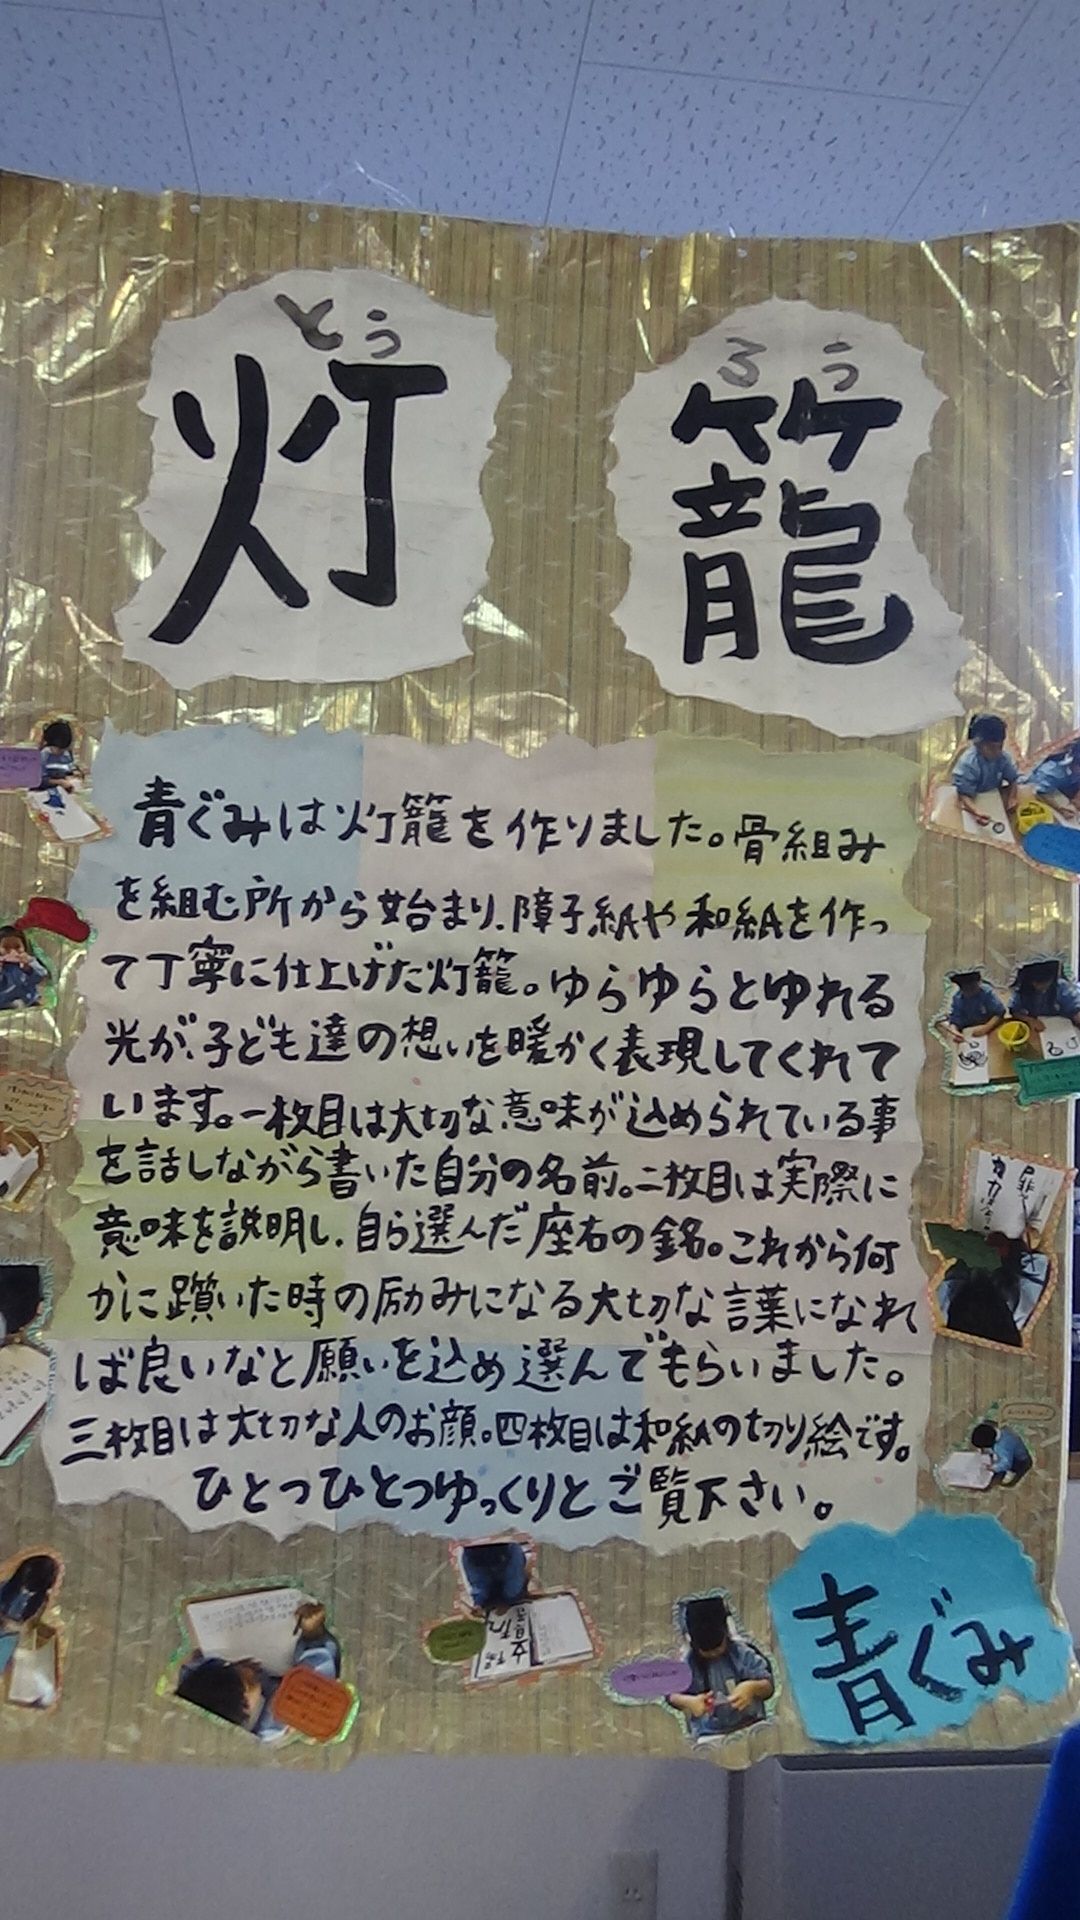 とう ろう
灯籠
青ぐみは灯籠を作りました。骨組み
を組む所から始まり、障子紙や和紙を作っ
て丁寧に仕上げた灯籠。ゆらゆらとゆれる
光が、子ども達の想いを暖かく表現してくれて
います。一枚目は大切な意味が込められている事
を話しながら書いた自分の名前。二枚目は実際に
意味を説明し、自ら選んだ座右の銘。これから何
かに躓いた時の励みになる大切な言葉になれ
ば良いなと願いを込め選んでもらいました。
三枚目は大切な人のお顔。四枚目は和紙の切り絵です。
ひとつひとつゆっくりとご覧下さい。
青ぐみ